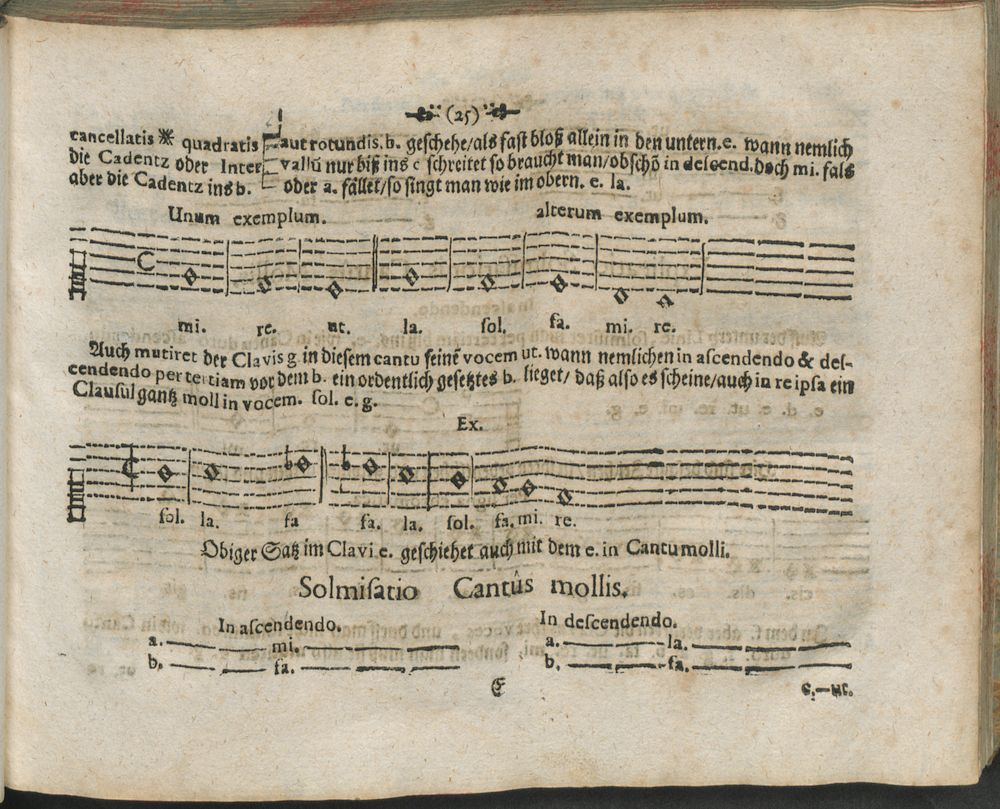 (25)
cancellatis ※ quadratis aut rotundis. b. geschehe/als fast bloß allein in den untern. e. wann nemlich
die Cadentz oder Intervallū nur biß ins c schreitet so braucht man/obschō in descend. doch mi. fals
aber die Cadentz ins b. oder a. fället/so singt man wie im obern. e. la.
Unum exemplum. alterum exemplum.
mi. re. ut. la. sol. fa. mi. re.
Auch mutiret der Clavis g. in diesem cantu seinē vocem ut. wann nemlichen in ascendendo & des-
cendendo per tertiam vor dem b. ein ordentlich gesetztes b. lieget/ daß also es scheine/auch in re ipsa ein
Clausul gantz moll in vocem. sol. e. g.
Ex.
sol. la. fa fa. la. sol. fa. mi. re.
Obiger Satz im Clavi e. geschiehet auch mit dem e. in Cantu molli.
Solmisatio Cantûs mollis.
In ascendendo. In descendendo.
a. mi. a. la.
b. fa. b. fa.
E c.—ut.